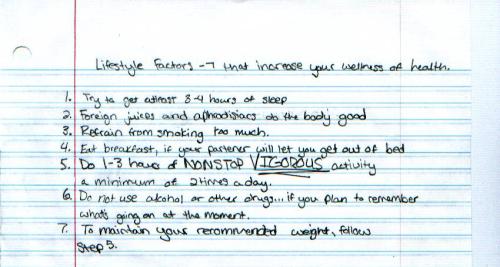 Lifestyle Factors -7 that increase your wellness of health.
1. Try to get atleast 3-4 hours of sleep
2. Foreign juices and aphrodisiacs do the body good
3. Refrain from smoking too much.
4. Eat breakfast, if your partener will let you get out of bed
5. Do 1-3 hours of NONSTOP VIGOROUS activity
a minimum of 2 times a day.
6. Do not use alcohol or other drugs... if you plan to remember
what's going on at the moment.
7. To maintain your recommended weight, follow
Step 5.